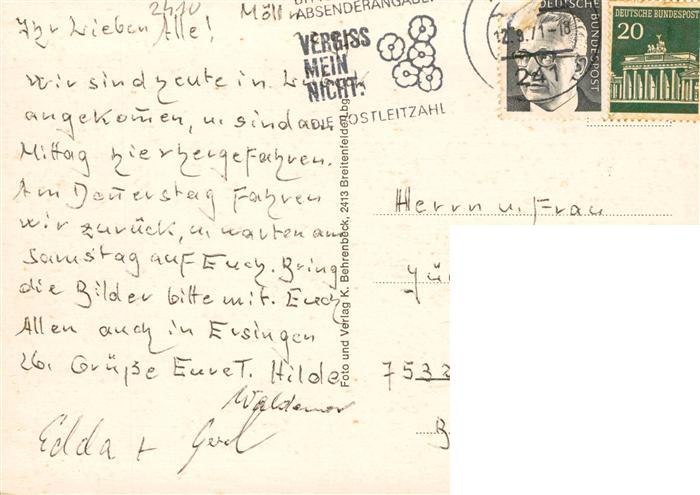 2410 Mölln
Ihr Lieben Alle!
Wir sind heute in
angekomen, u. sind am
Mittag hierhergefahren.
Am Donerstag fahren
wir zurück, u. warten am
Samstag auf Euch. Bring
die Bilder bitte mit. Euch
Allen auch in Ersingen
lb. Grüße Eure T. Hilde
Waldemar
Edda + Gerd
ABSENDERANGABE
VERGISS
MEIN
NICHT!
DIE POSTLEITZAHL
12.9.71-18
241
DEUTSCHE BUNDESPOST
DEUTSCHE BUNDESPOST
20
Foto und Verlag K. Behrenbeck, 2413 Breitenfelde/Lbg.
Herrn u. Frau
753
B